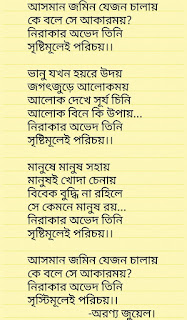 আসমান জমিন যেজন চালায়
কে বলে সে আকারময়?
নিরাকার অভেদ তিনি
সৃষ্টিমূলেই পরিচয়।।
ভানু যখন হয়রে উদয়
জগৎজুড়ে আলোকময়
আলোক দেখে সূর্য চিনি
আলোক বিনে কি উপায়...
নিরাকার অভেদ তিনি
সৃষ্টিমূলেই পরিচয়।।
মানুষে মানুষ সহায়
মানুষই খোদা চেনায়
বিবেক বুদ্ধি না রহিলে
সে কেমনে মানুষ রয়...
নিরাকার অভেদ তিনি
সৃষ্টিমূলেই পরিচয়।।
আসমান জমিন যেজন চালায়
কে বলে সে আকারময়?
নিরাকার অভেদ তিনি
সৃস্টিমূলেই পরিচয়।।
-অরণ্য জুয়েল।